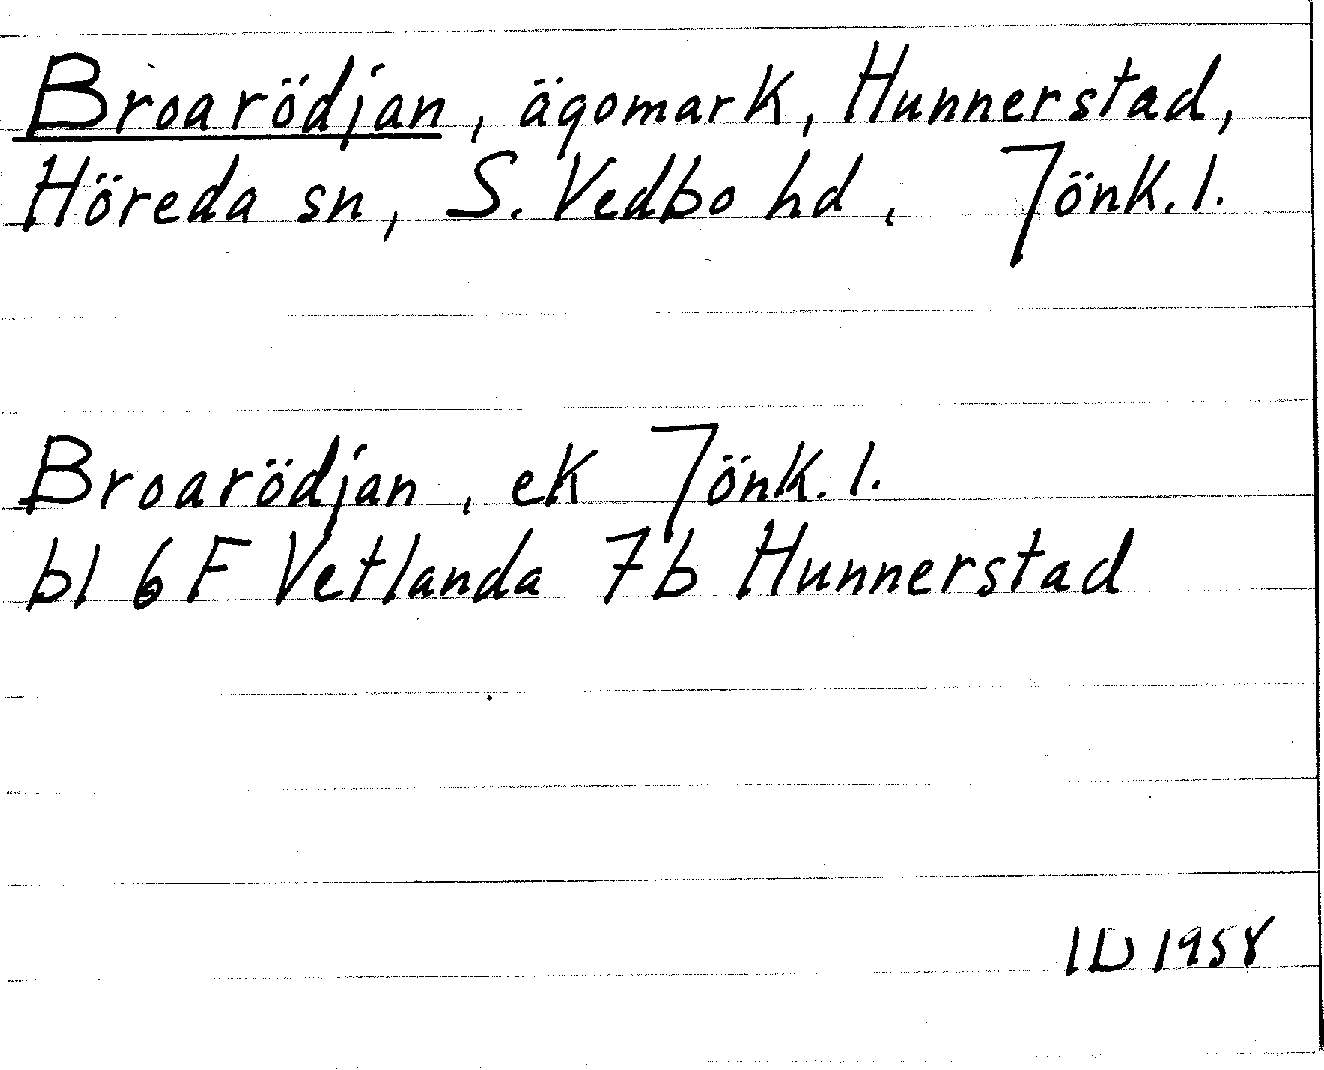 Broarödjan, ägomark, Hunnerstad,
Höreda sn, S. Vedbo hd, Jönk. l.
Broarödjan, ek Jönk. l.
bl 6 F Vetlanda 7b Hunnerstad
ID 1958